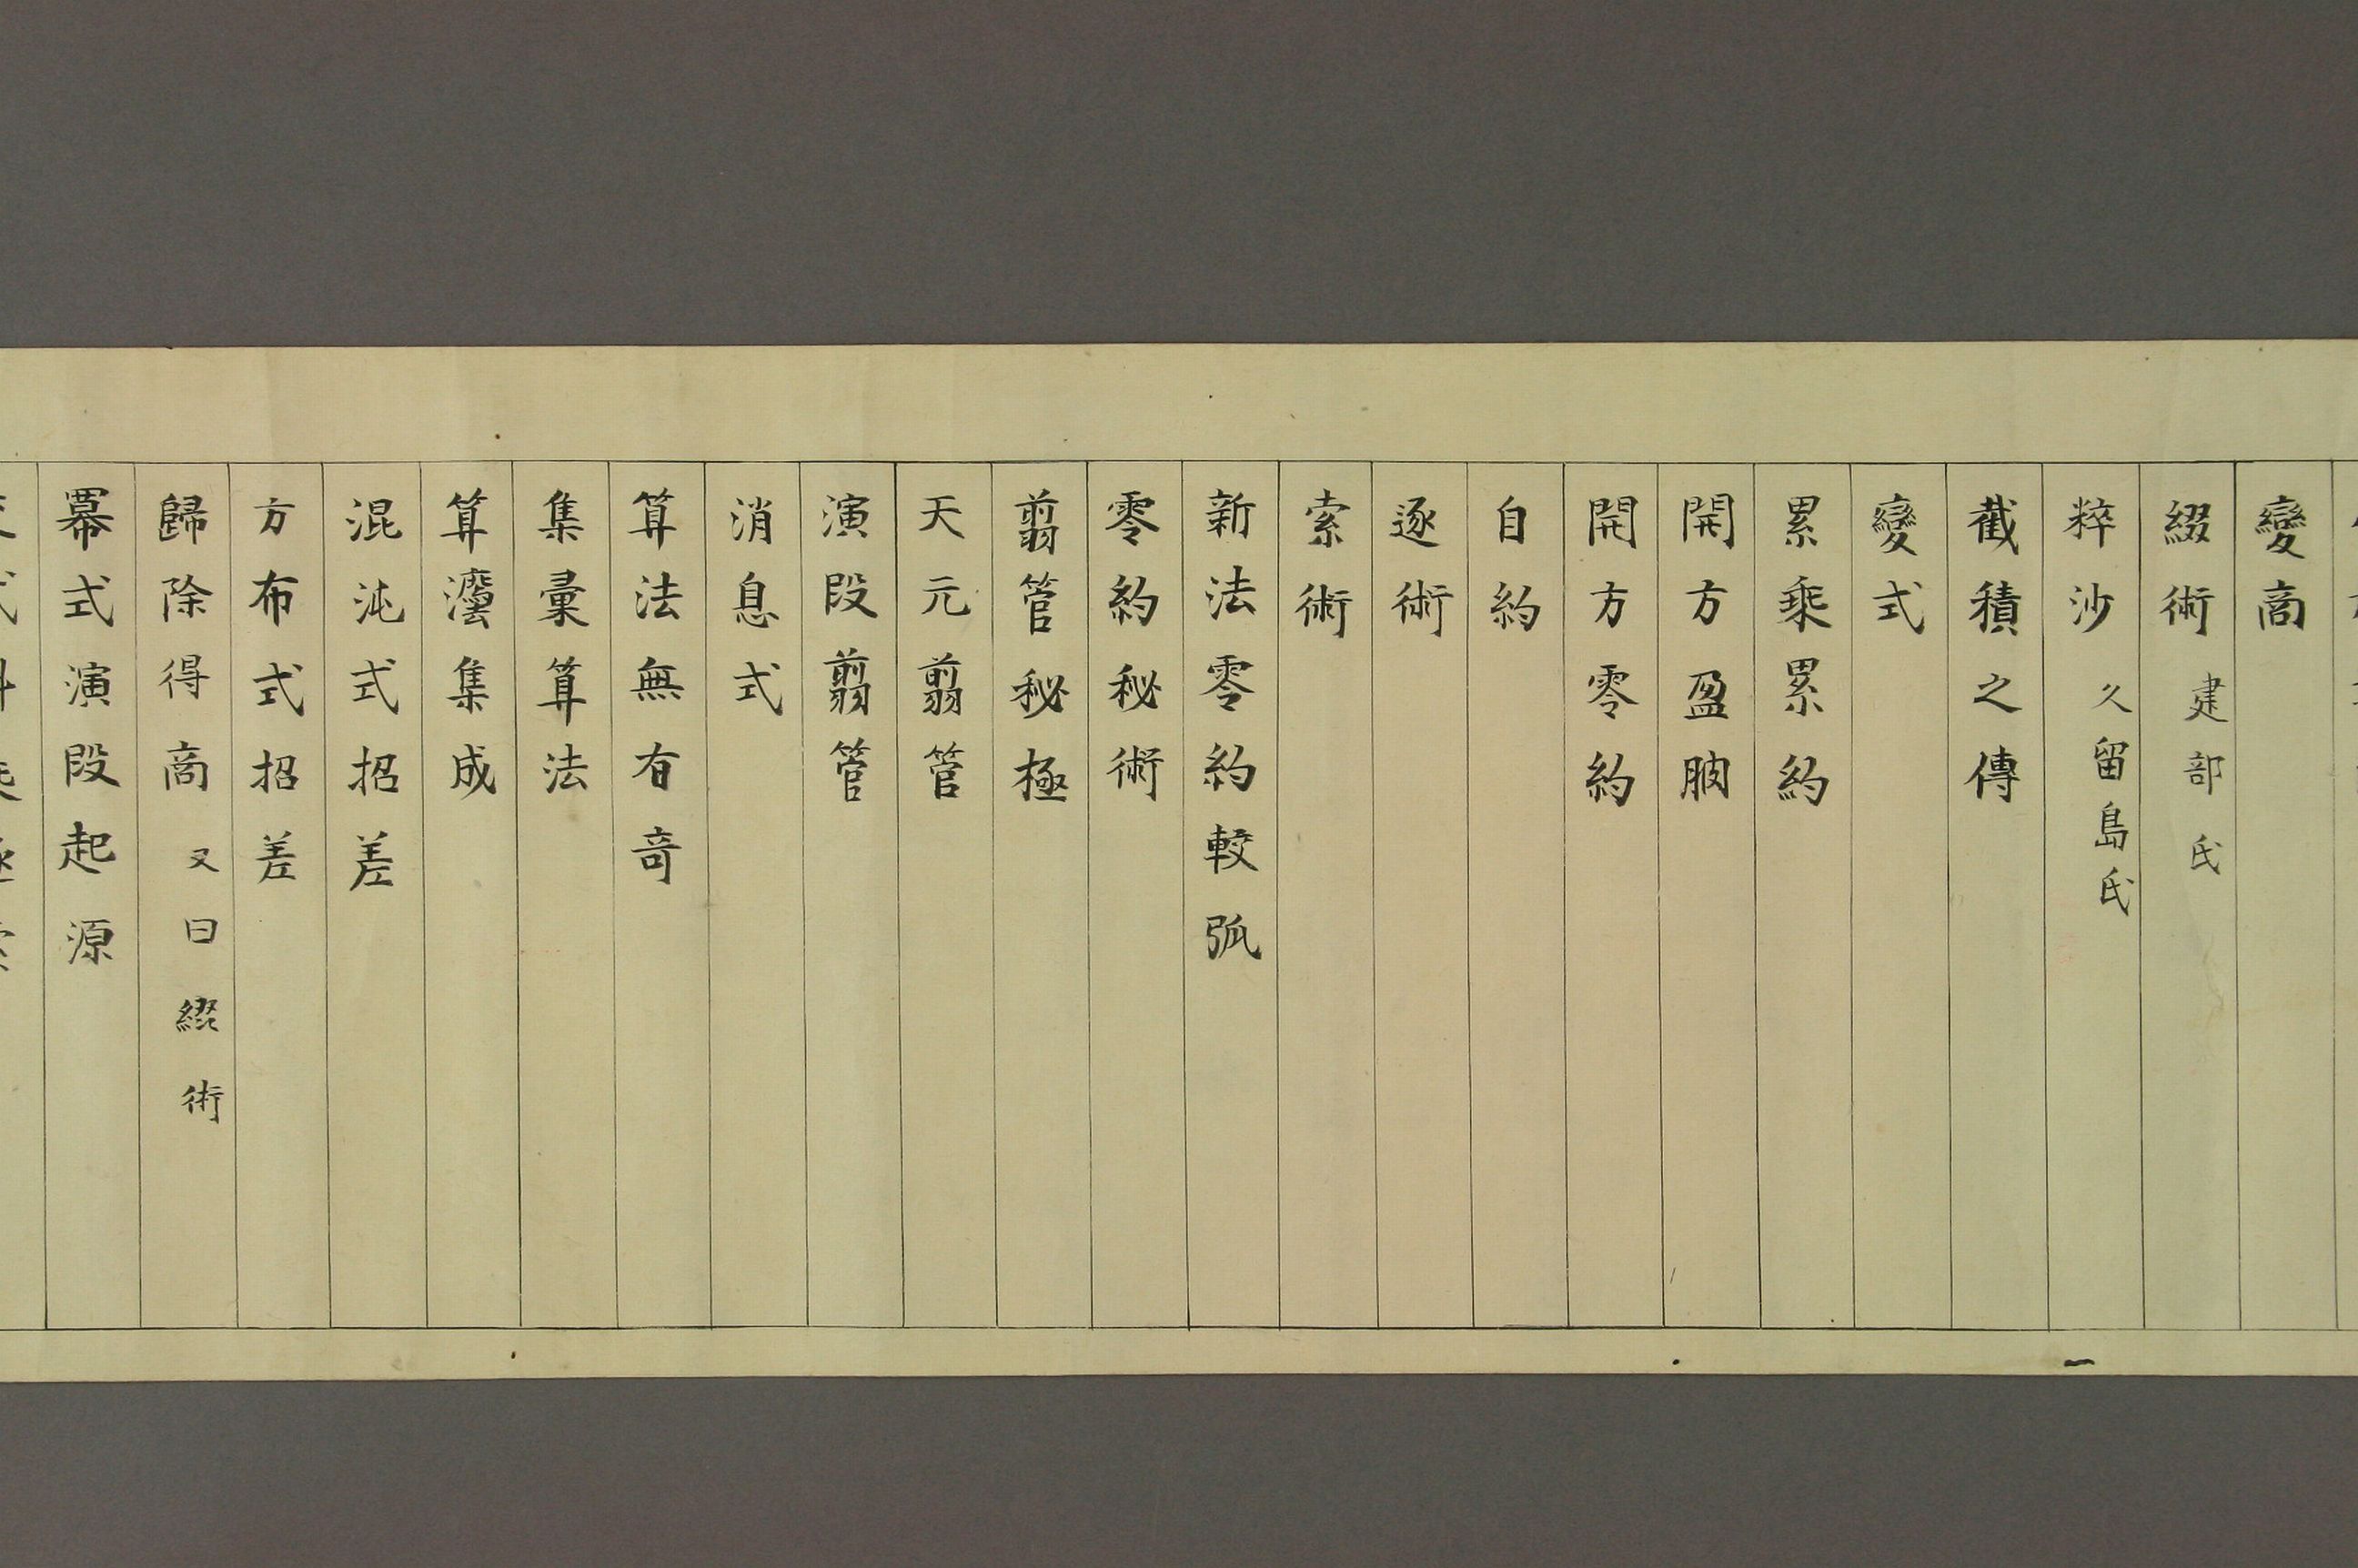 變商
綴術 建部氏
粹沙 久留島氏
截積之傳
變式
累乘累約
開方盈朒
開方零約
自約
逐術
索術
新法零約較弧
零約秘術
翦管秘極
天元翦管
演段翦管
消息式
算法無有奇
集彙算法
算灋集成
混沌式招差
方布式招差
歸除得商 又曰綴術
冪式演段起源